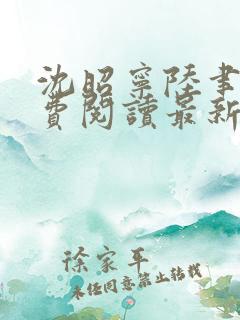 沈昭寧陸書
費閱讀最新
徐家平
未经同意禁止转载